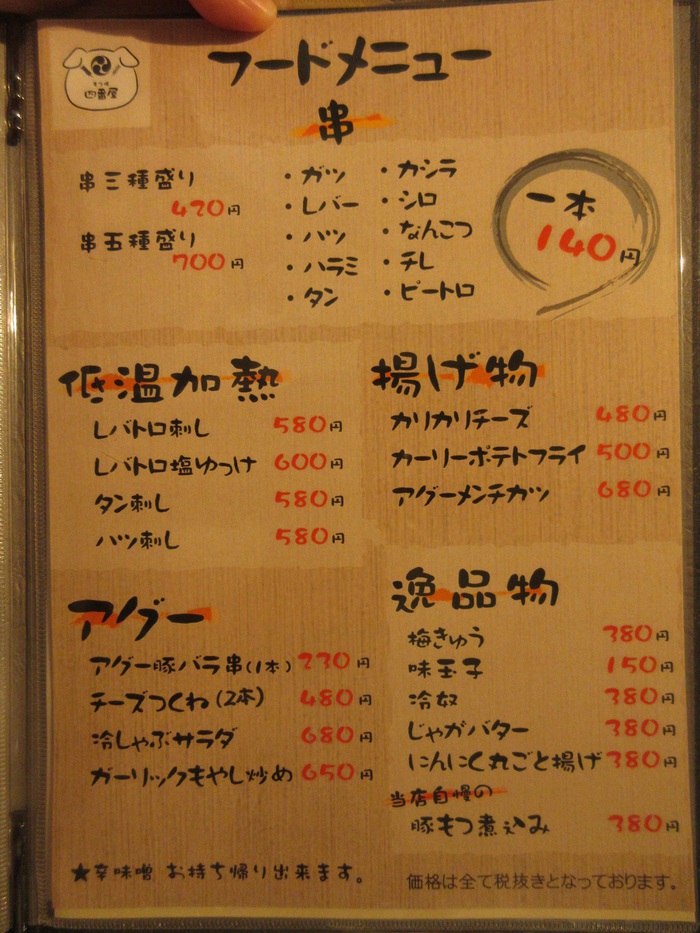 もつ焼
四番屋
フードメニュー
串
串三種盛り
420円
串五種盛り
700円
・ガツ
・レバー
・ハツ
・ハラミ
・タン
・カシラ
・シロ
・なんこつ
・チレ
・ピートロ
一本
140円
低温加熱
レバトロ刺し 580円
レバトロ塩ゆっけ 600円
タン刺し 580円
ハツ刺し 580円
揚げ物
カリカリチーズ 480円
カーリーポテトフライ 500円
アグーメンチカツ 680円
アグー
アグー豚バラ串(1本) 230円
チーズつくね(2本) 480円
冷しゃぶサラダ 680円
ガーリックもやし炒め 650円
逸品物
梅きゅう 380円
味玉子 150円
冷奴 380円
じゃがバター 380円
にんにく丸ごと揚げ 380円
当店自慢の
豚もつ煮込み 380円
★辛味噌 お持ち帰り出来ます。
価格は全て税抜きとなっております。